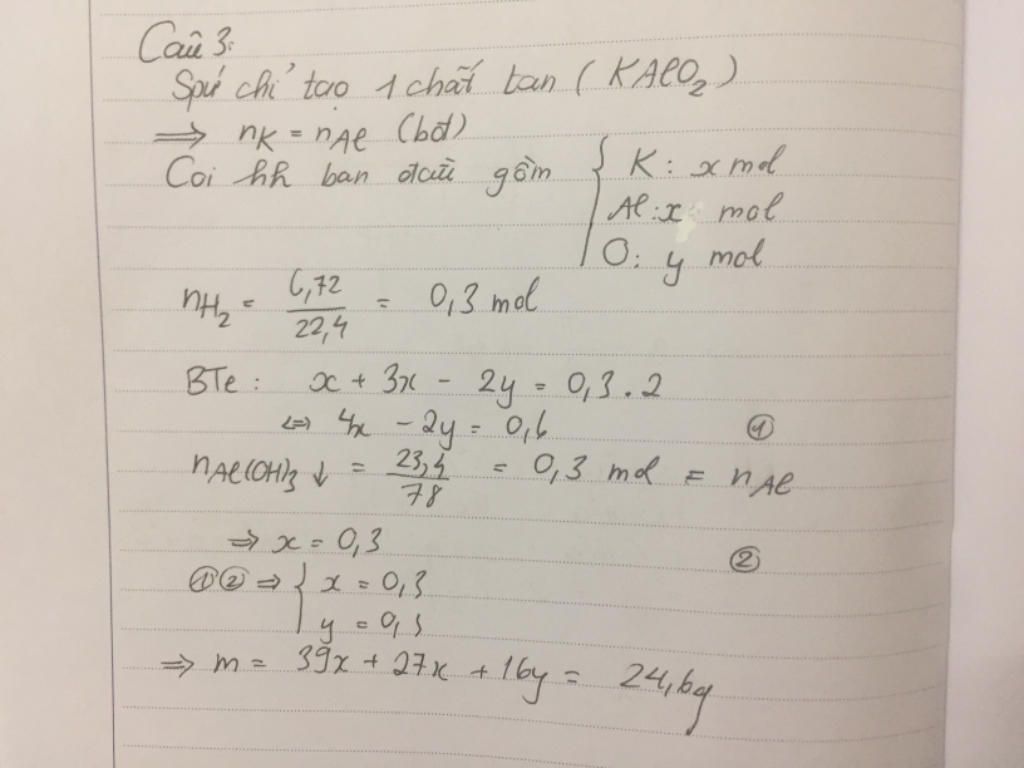 Câu 3:
Spứ chỉ tạo 1 chất tan ( KAlO₂ )
⟹ nK = nAl (bđ)
Coi hh ban đầu gồm { K: x mol
Al: x mol
O: y mol
nH₂ = 6,72/22,4 = 0,3 mol
BTe: x + 3x - 2y = 0,3 . 2
⇔ 4x - 2y = 0,6 ①
nAl(OH)₃↓ = 23,4/78 = 0,3 mol = nAl
⇒ x = 0,3 ②
①② ⇒ { x = 0,3
y = 0,3
⇒ m = 39x + 27x + 16y = 24,6g